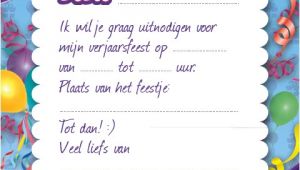 Ik wil je graag uitnodigen voor
mijn verjaarsfeest op
van tot uur.
Plaats van het feestje:
Tot dan! :)
Veel liefs van